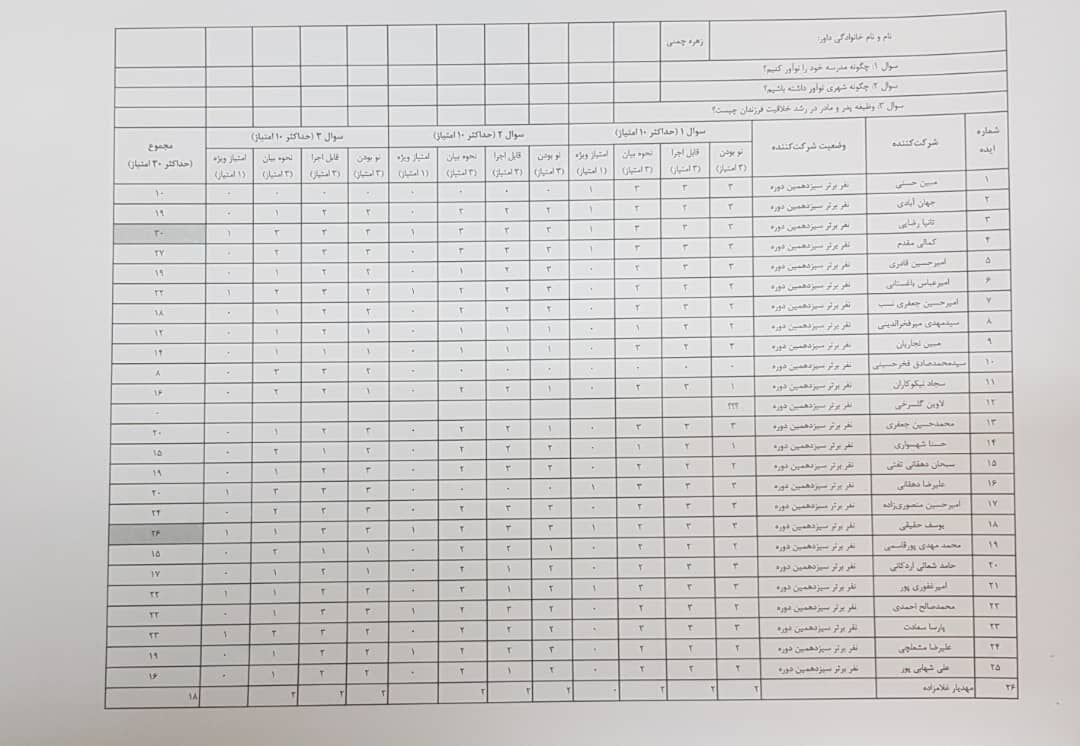 نام و نام خانوادگی داور: زهره چمنی
سوال ۱: چگونه مدرسه خود را نوآور کنیم؟
سوال ۲: چگونه شهری نوآور داشته باشیم؟
سوال ۳: وظیفه پدر و مادر در رشد خلاقیت فرزندان چیست؟
شماره ایده شرکت‌کننده وضعیت شرکت‌کننده سوال ۱ (حداکثر ۱۰ امتیاز) سوال ۲ (حداکثر ۱۰ امتیاز) سوال ۳ (حداکثر ۱۰ امتیاز) مجموع (حداکثر ۳۰ امتیاز)
نو بودن (۳ امتیاز) قابل اجرا (۳ امتیاز) نحوه بیان (۳ امتیاز) امتیاز ویژه (۱ امتیاز) نو بودن (۳ امتیاز) قابل اجرا (۳ امتیاز) نحوه بیان (۳ امتیاز) امتیاز ویژه (۱ امتیاز) نو بودن (۳ امتیاز) قابل اجرا (۳ امتیاز) نحوه بیان (۳ امتیاز) امتیاز ویژه (۱ امتیاز)
۱ مبین حسنی نفر برتر سیزدهمین دوره ۳ ۳ ۳ ۱ ۰ ۰ ۰ ۰ ۰ ۰ ۰ ۰ ۱۰
۲ جهان آبادی نفر برتر سیزدهمین دوره ۱۹
۳ تانیا رضایی نفر برتر سیزدهمین دوره ۳ ۳ ۳ ۱ ۳ ۳ ۳ ۱ ۳ ۳ ۳ ۱ ۳۰
۴ کمالی مقدم نفر برتر سیزدهمین دوره ۳ ۳ ۳ ۱ ۳ ۳ ۳ ۰ ۳ ۳ ۲ ۰ ۲۷
۵ امیرحسین قادری نفر برتر سیزدهمین دوره ۳ ۳ ۲ ۰ ۳ ۲ ۱ ۰ ۲ ۲ ۱ ۰ ۱۹
۶ امیرعباس باغستانی نفر برتر سیزدهمین دوره ۲۲
۷ امیرحسین جعفری نسب نفر برتر سیزدهمین دوره ۲ ۳ ۲ ۰ ۲ ۲ ۲ ۰ ۲ ۲ ۱ ۰ ۱۸
۸ سیدمهدی میرفخرالدینی نفر برتر سیزدهمین دوره ۲ ۲ ۱ ۰ ۱ ۱ ۱ ۰ ۱ ۲ ۱ ۰ ۱۲
۹ مبین نجاریان نفر برتر سیزدهمین دوره ۳ ۲ ۳ ۰ ۱ ۱ ۱ ۰ ۱ ۱ ۱ ۰ ۱۴
۱۰ سیدمحمدصادق فخرحسینی نفر برتر سیزدهمین دوره ۰ ۰ ۰ ۰ ۰ ۰ ۰ ۰ ۲ ۳ ۳ ۰ ۸
۱۱ سجاد نیکوکاران نفر برتر سیزدهمین دوره ۱ ۳ ۲ ۰ ۱ ۲ ۲ ۰ ۱ ۲ ۲ ۰ ۱۶
۱۲ لاوین گلسرخی نفر برتر سیزدهمین دوره ؟؟؟ ۰
۱۳ محمدحسین جعفری نفر برتر سیزدهمین دوره ۳ ۳ ۳ ۰ ۱ ۲ ۲ ۰ ۳ ۲ ۱ ۰ ۲۰
۱۴ حسنا شهسواری نفر برتر سیزدهمین دوره ۱۵
۱۵ سبحان دهقانی تفتی نفر برتر سیزدهمین دوره ۱۹
۱۶ علیرضا دهقانی نفر برتر سیزدهمین دوره ۳ ۳ ۳ ۱ ۰ ۰ ۰ ۰ ۳ ۳ ۳ ۱ ۲۰
۱۷ امیرحسین منصوری‌زاده نفر برتر سیزدهمین دوره ۳ ۳ ۲ ۰ ۳ ۳ ۲ ۰ ۳ ۳ ۲ ۰ ۲۴
۱۸ یوسف حقیقی نفر برتر سیزدهمین دوره ۳ ۳ ۲ ۱ ۳ ۳ ۲ ۱ ۳ ۳ ۱ ۱ ۲۶
۱۹ محمد مهدی پورقاسمی نفر برتر سیزدهمین دوره ۲ ۲ ۲ ۰ ۱ ۲ ۲ ۰ ۱ ۱ ۲ ۰ ۱۵
۲۰ حامد شمائی اردکانی نفر برتر سیزدهمین دوره ۳ ۳ ۲ ۰ ۲ ۱ ۲ ۰ ۱ ۲ ۱ ۰ ۱۷
۲۱ امیرغفوری پور نفر برتر سیزدهمین دوره ۳ ۳ ۳ ۱ ۲ ۱ ۳ ۰ ۲ ۲ ۱ ۱ ۲۲
۲۲ محمدصالح احمدی نفر برتر سیزدهمین دوره ۲۲
۲۳ پارسا سعادت نفر برتر سیزدهمین دوره ۳ ۳ ۳ ۰ ۲ ۲ ۲ ۰ ۲ ۳ ۲ ۱ ۲۳
۲۴ علیرضا مشعلچی نفر برتر سیزدهمین دوره ۱۹
۲۵ علی شهابی پور نفر برتر سیزدهمین دوره ۲ ۲ ۲ ۰ ۲ ۱ ۲ ۰ ۲ ۲ ۱ ۰ ۱۶
۲۶ مهدیار غلامزاده ۲ ۲ ۲ ۰ ۲ ۲ ۲ ۲ ۲ ۲ ۱۸